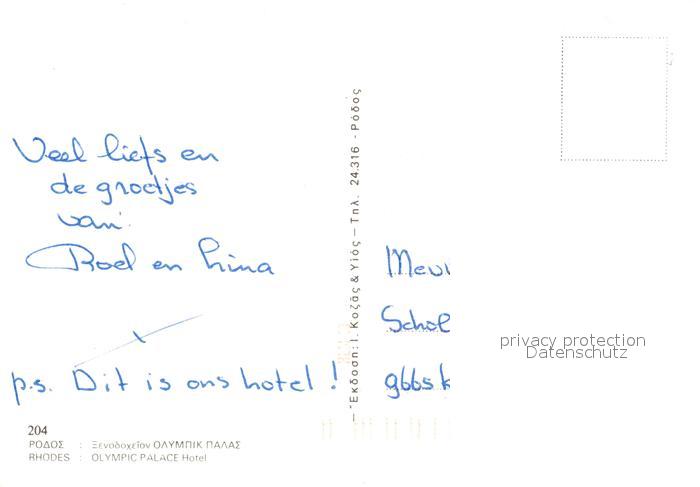 Veel liefs en
de groetjes
van:
Roel en Lina
x
p.s. Dit is ons hotel!
204
ΡΟΔΟΣ : Ξενοδοχεῖον ΟΛΥΜΠΙΚ ΠΑΛΑΣ
RHODES : OLYMPIC PALACE Hotel
— Ἔκδοση: Ι. Κοζᾶς & Υἱός — Τηλ. 24.316 - Ρόδος
Schol
privacy protection
Datenschutz